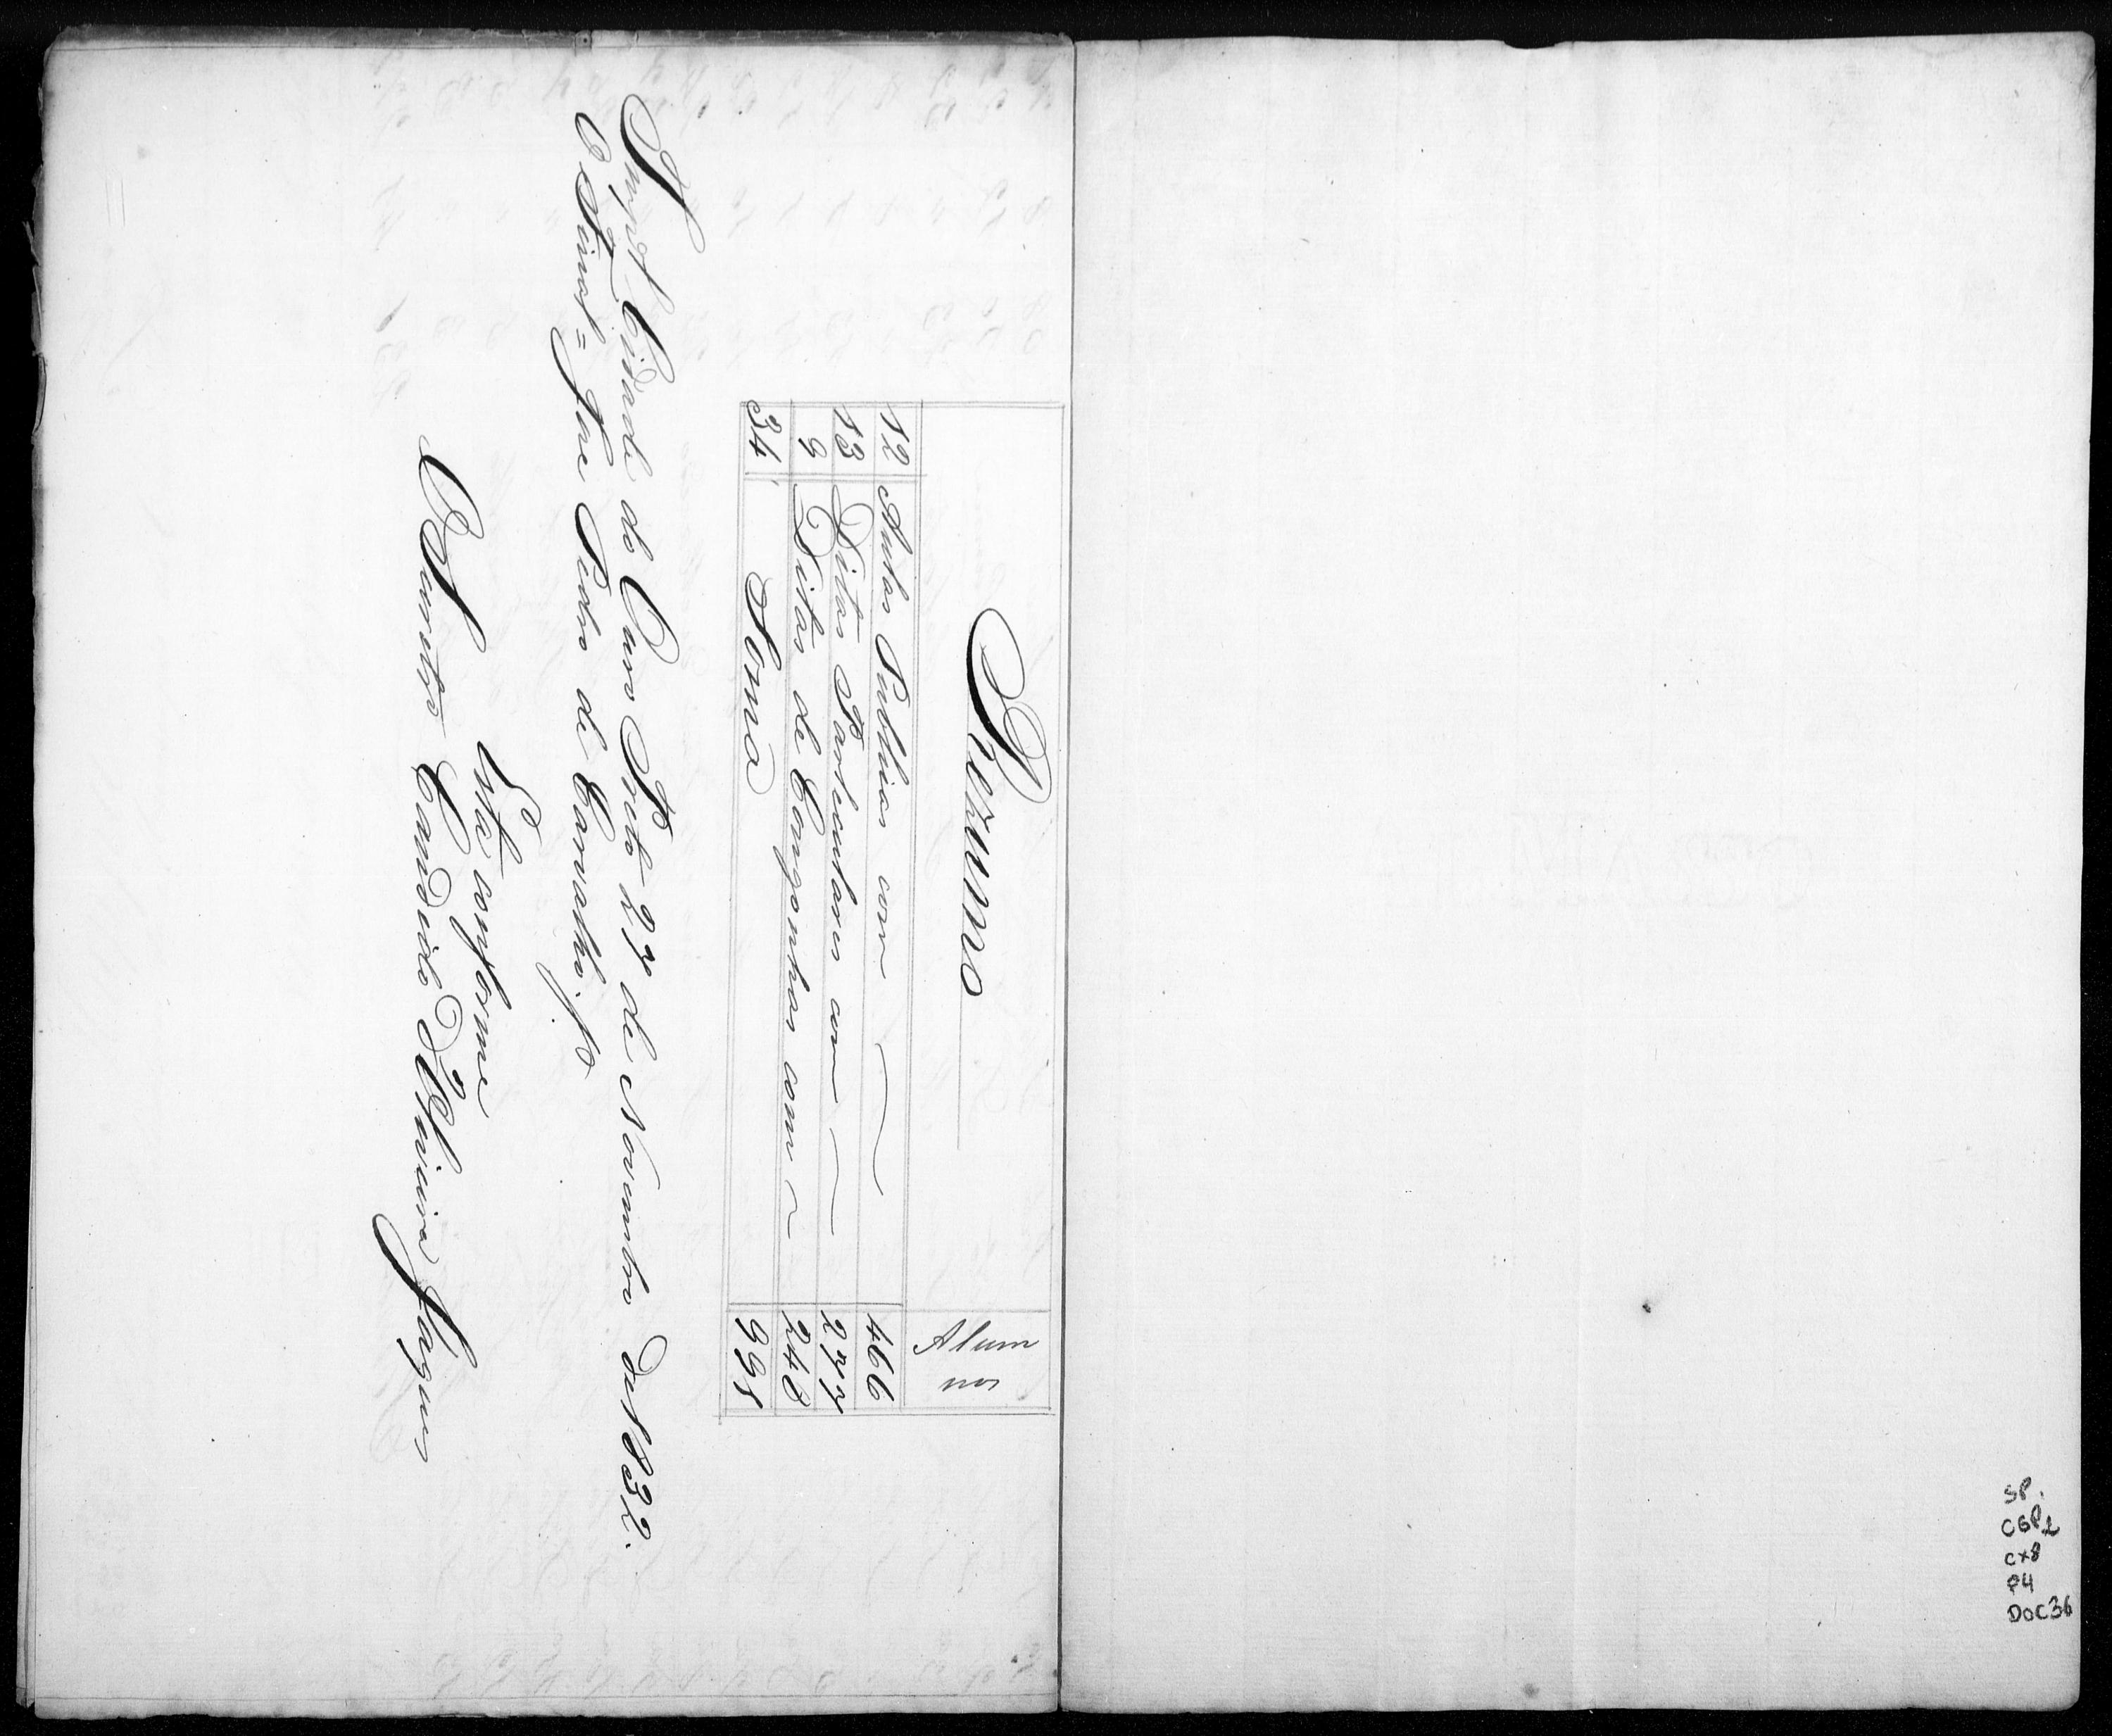 Rezumo
Alum
nos
12 Aulas Publicas com 466
13 Ditas Particulares com 277
9 Ditas de Congonhas com 248
34 Soma 991
Imp.l Cidade do Ouro Preto 27 de Novembro de 1832.
O Secret.º = Joze Pedro de Carvalho.
Está conforme
O Secretro Candido d'Oliveira Jaques
SP.
CGP1
cx8
P4
DOC36